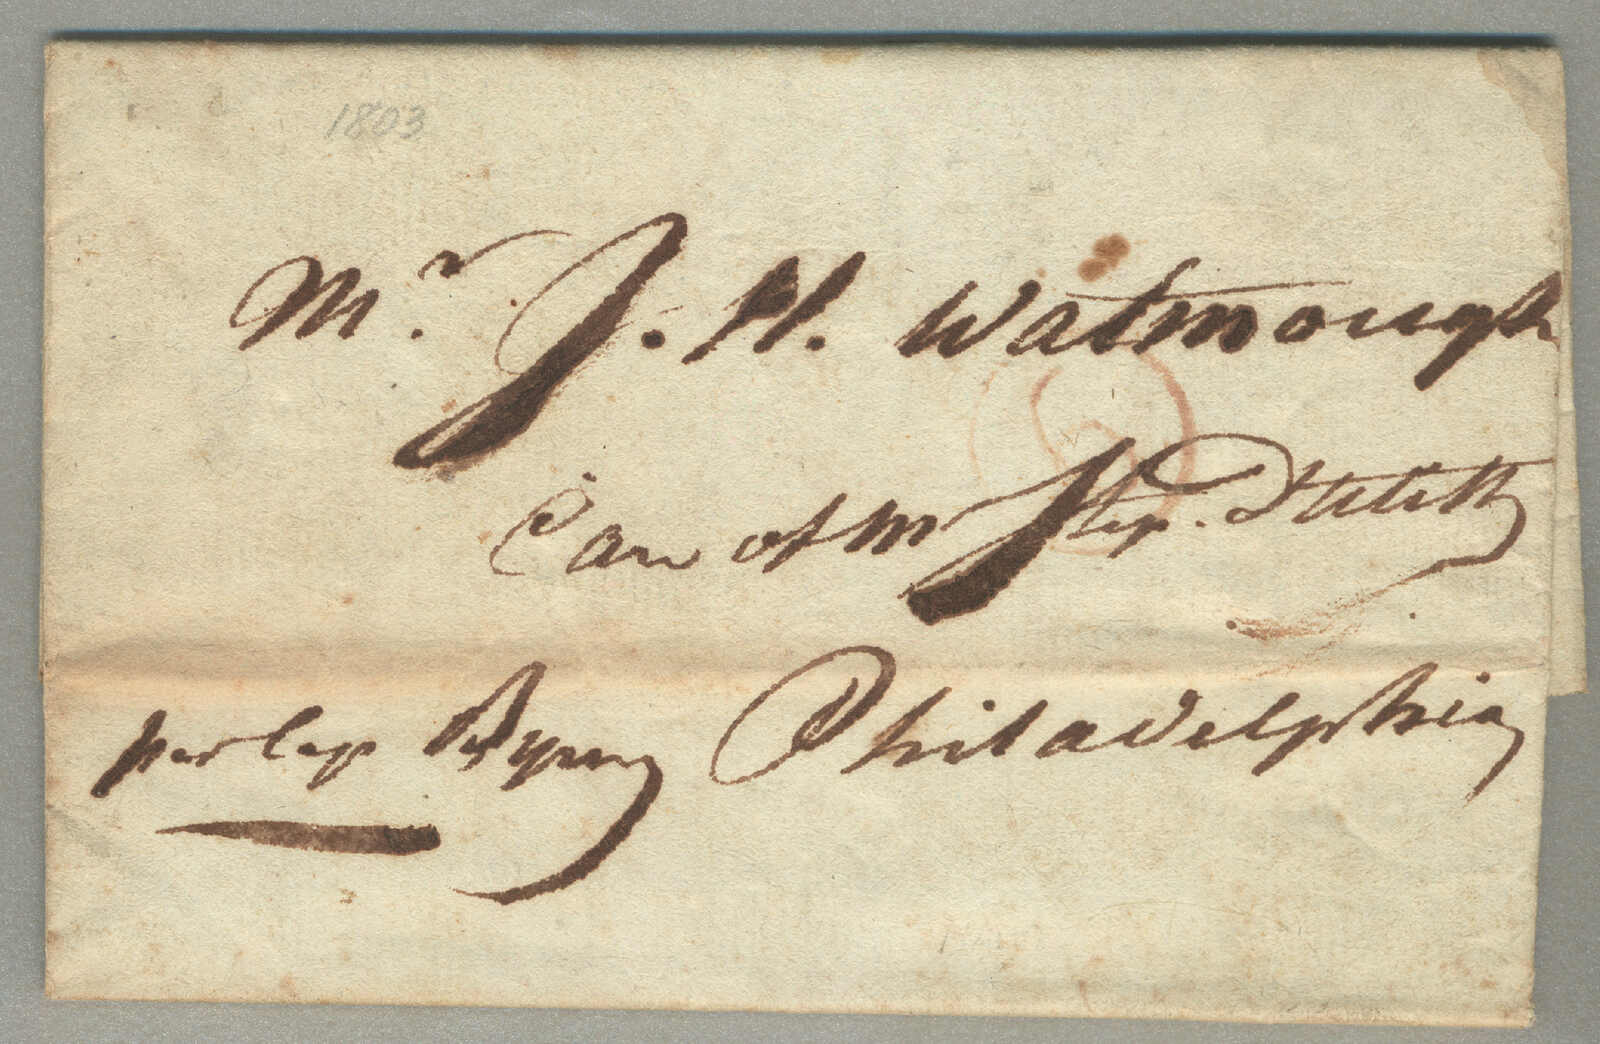 1803
Mr. J. H. Watmough
Care of Mr Step. Dutilh
Philadelphia
per Cap Byrne